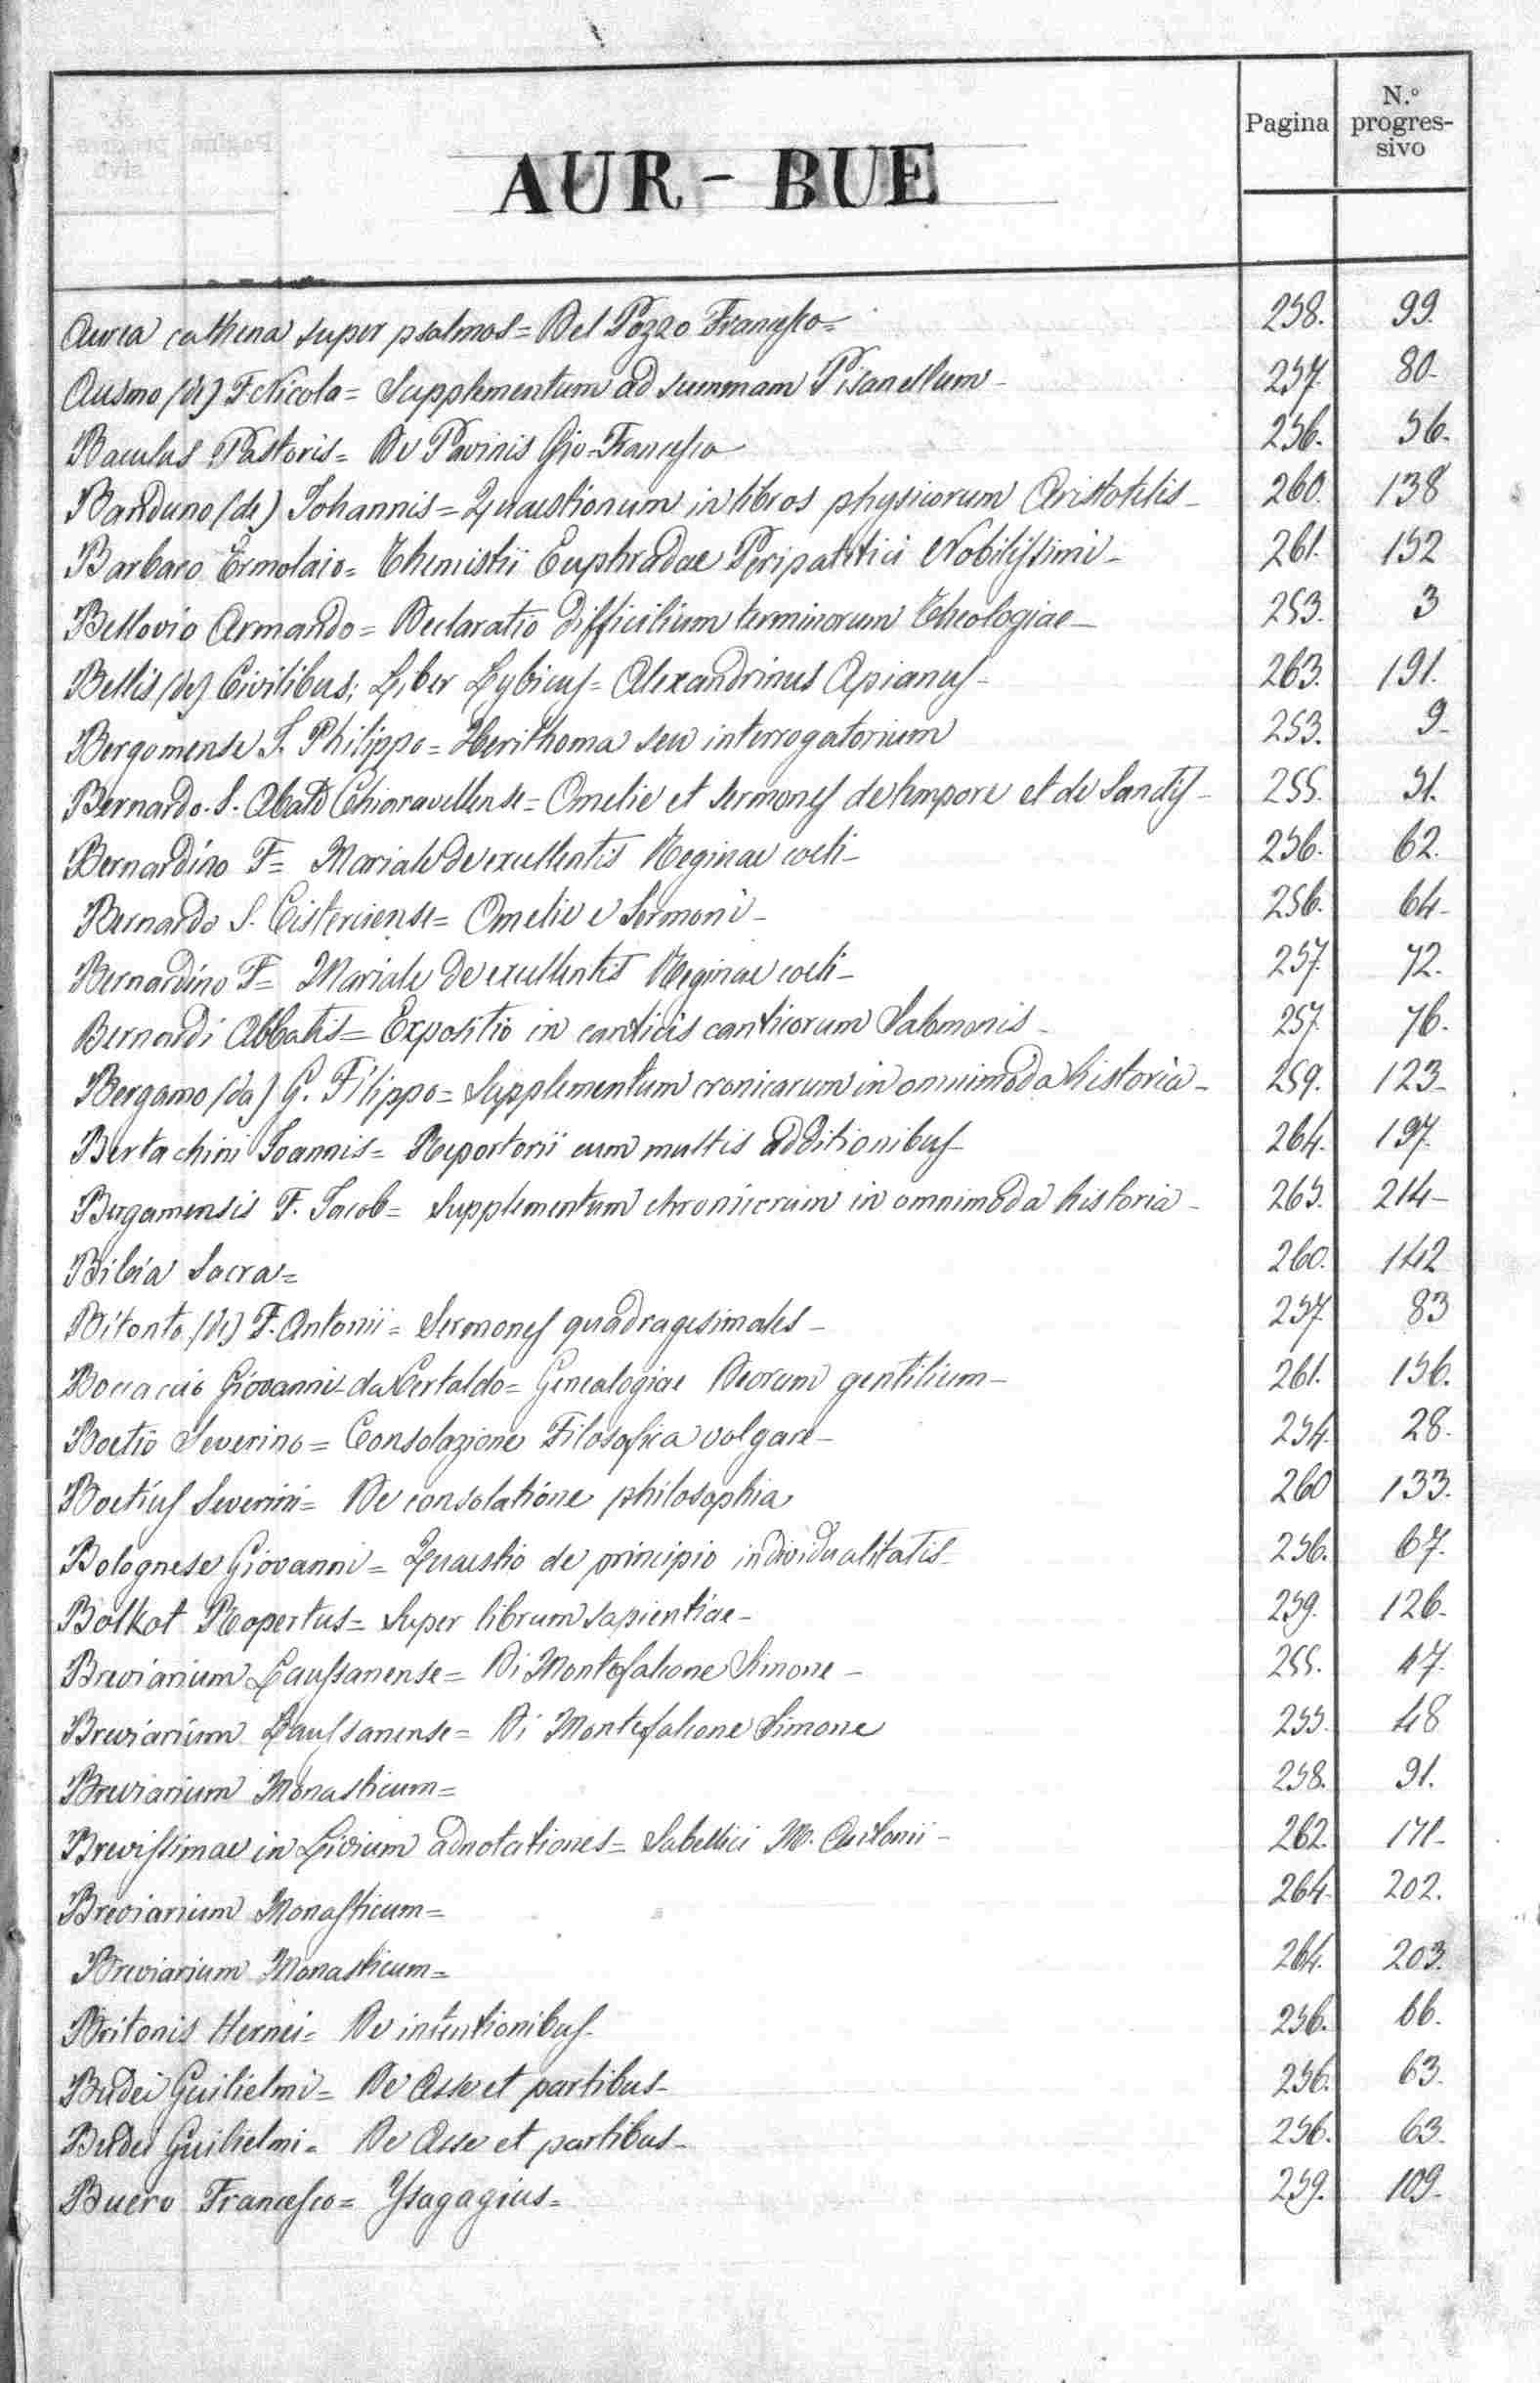 Pagina
N.º progres-
sivo
AUR - BUE
Aurea cathena super psalmos = Del Pozzo Francesco = 258. 99.
Ausmo (de) F. Nicola = Supplementum ad summam Pisanellum - 257. 80-
Baculus Pastoris = De Pavinis Gio-Francesco 256. 56.
Banduno (de) Johannis = Quaestionum in libros physicorum Aristotelis - 260. 138
Barbaro Ermolaio = Themistii Euphradae Peripatetici Nobilissimi - 261. 152
Bellovio Armando = Declaratio difficilium terminorum Theologiae - 253. 3
Bellis (de) Civilibus; Liber Lybicus = Alexandrinus Apianus - 263. 191.
Bergomense J. Philippo = Herithoma seu interrogatorium 253. 9-
Bernardo. S. Abate Chiaravellense = Omelie et sermones de tempore et de Sanctis - 255. 51.
Bernardino F = Mariale de excellentis Reginae coeli - 256. 62.
Bernardo S. Cisterciense = Omelie e Sermoni - 256. 64-
Bernardino F = Mariale de excellentis Reginae coeli - 257. 72.
Bernardi Abbatis = Expositio in canticis canticorum Salomonis - 257. 76.
Bergamo (da) G. Filippo = Supplementum cronicarum in omnimoda historia - 259. 123-
Bertachini Joannis = Repertorii cum multis additionibus - 264. 197.
Bergamensis F. Jacob = Supplementum chronicrum in omnimoda historia - 265. 214-
Bibia Sacra = 260. 142
Bitonto (de) F. Antonii = Sermones quadragesimales - 257. 83
Boccaccio Giovanni da Certaldo = Genealogiae Deorum gentilium - 261. 156.
Boetio Severino = Consolazione Filosofica volgare - 254. 28.
Boetius Severini = De consolatione philosophia 260 133.
Bolognese Giovanni = Quaestio de principio individualitatis - 256. 67.
Bolkot Ropertus = Super librum sapientiae - 259. 126-
Breviarium Laussanense = Di Montefalcone Simone - 255. 47.
Breviarium Laussanense = Di Montefalcone Simone 255. 48
Breviarium Monasticum = 258. 91.
Brevissimae in Livium adnotationes = Sabellici M. Antonii - 262. 171-
Breviarium Monasticum = 264. 202.
Breviarium Monasticum = 264. 203.
Britonis Hernei = De intentionibus - 256. 66.
Budei Guilielmi = De Asse et partibus - 256. 63.
Budei Guilielmi = De Asse et partibus - 256. 63.
Buero Francesco = Ysagagius = 259. 109-